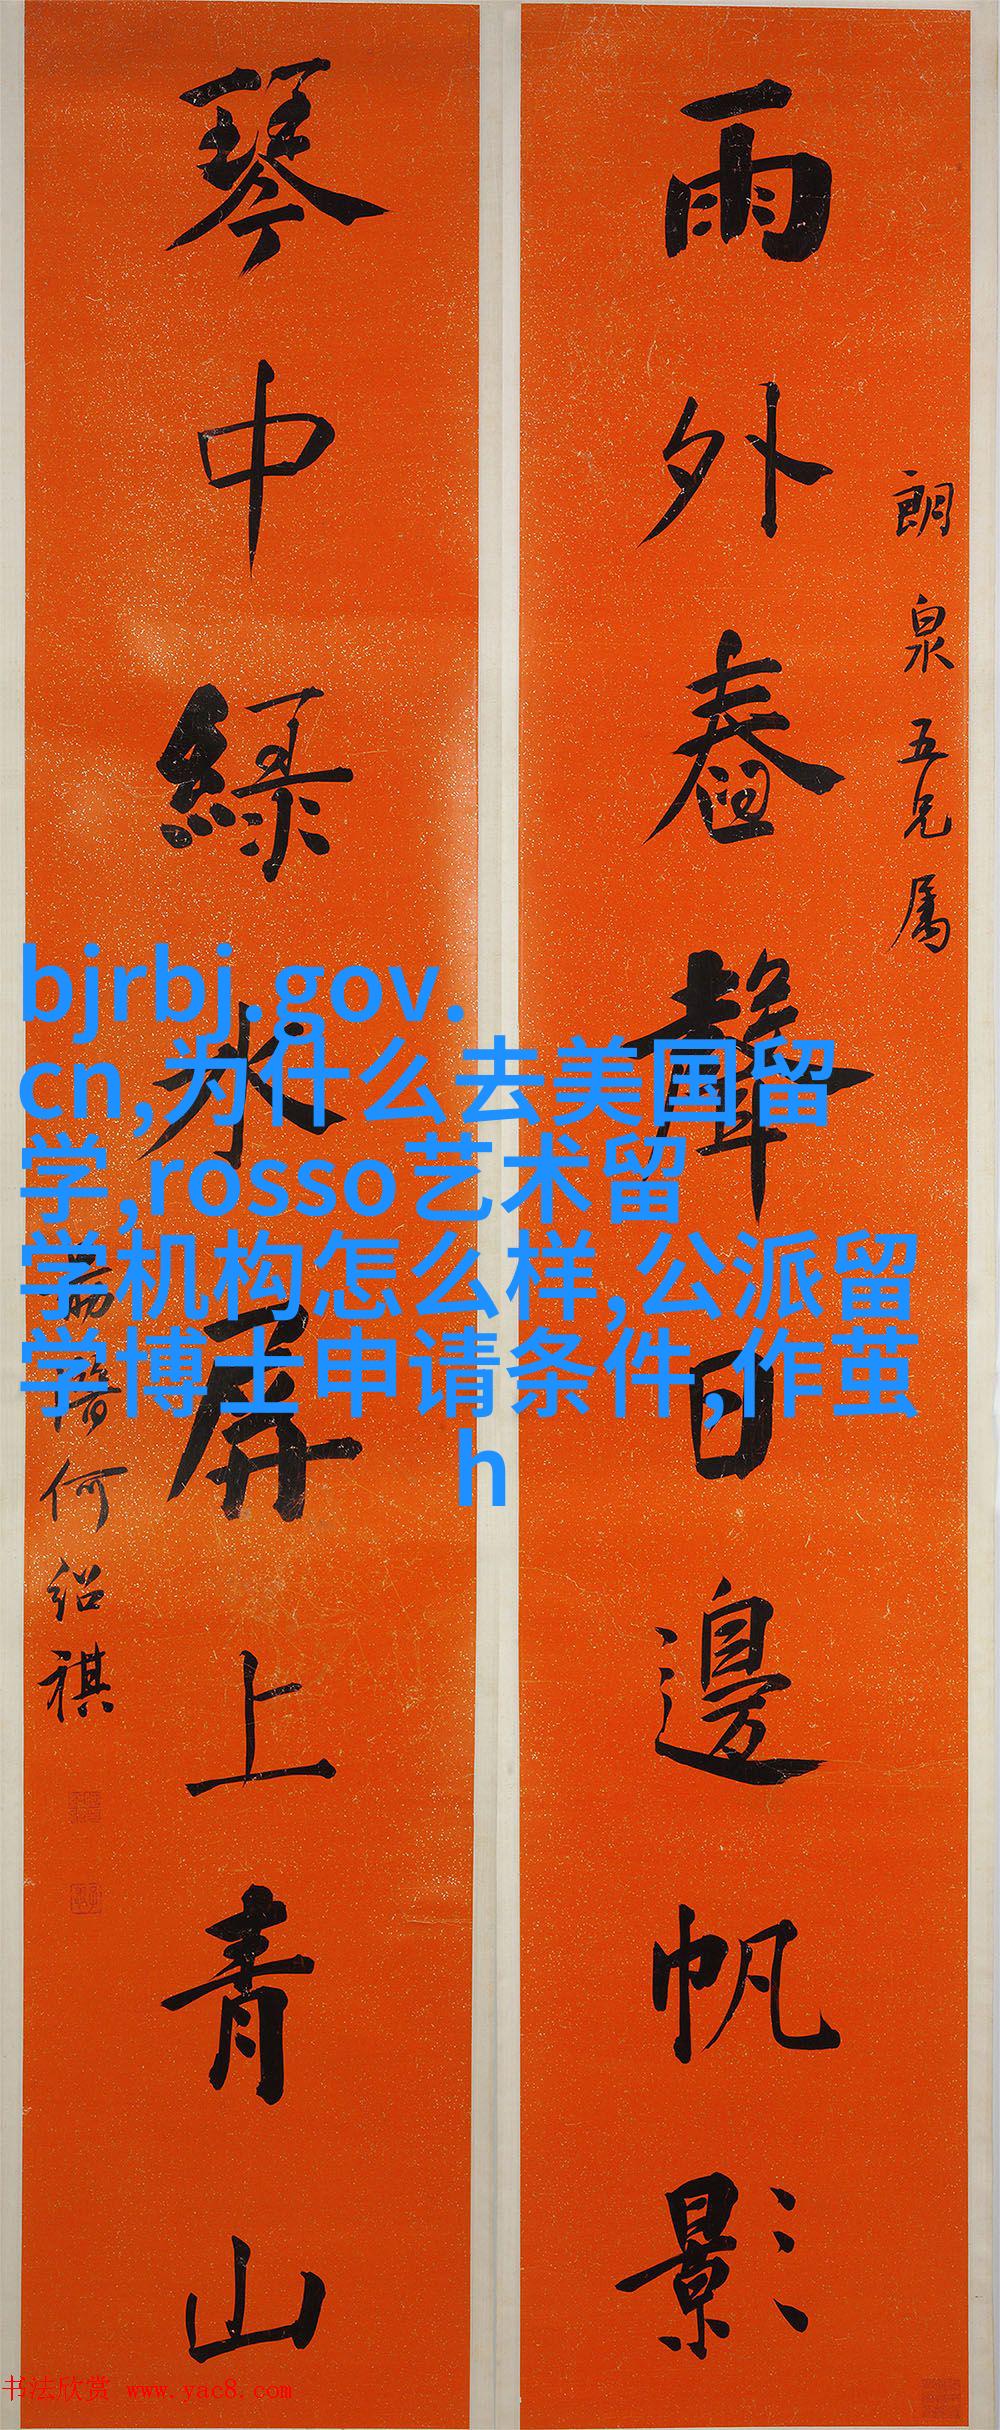 雨外舂聲日邊帆影
朗泉五兄属
琴中綠水屏上青山
何紹祺
bjrbj.gov.
cn,为什么去美国留
学,rosso艺术留
学机构怎么样,公派留
学博士申请条件,作茧
h
书法欣赏 www.yac8.com